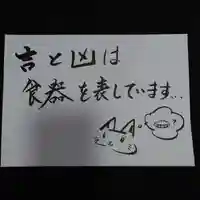 吉と凶は
食器を表しています…